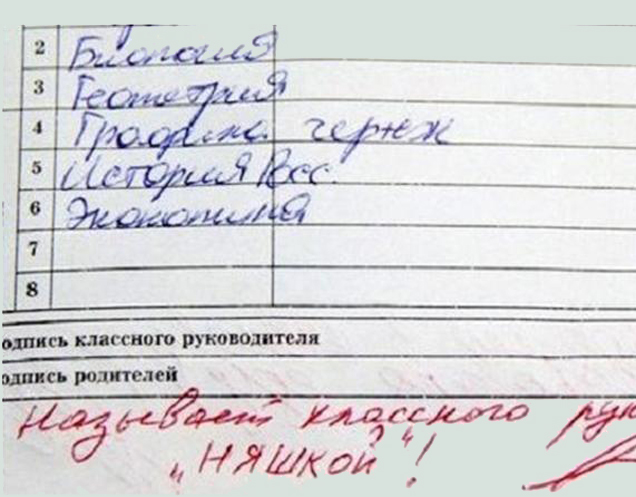 2 Биология
3 Геометрия
4 Графика черчеж
5 История Росс.
6 Экономика
7
8
одпись классного руководителя
одпись родителей
Называет классного рук
„НЯШКОЙ“!